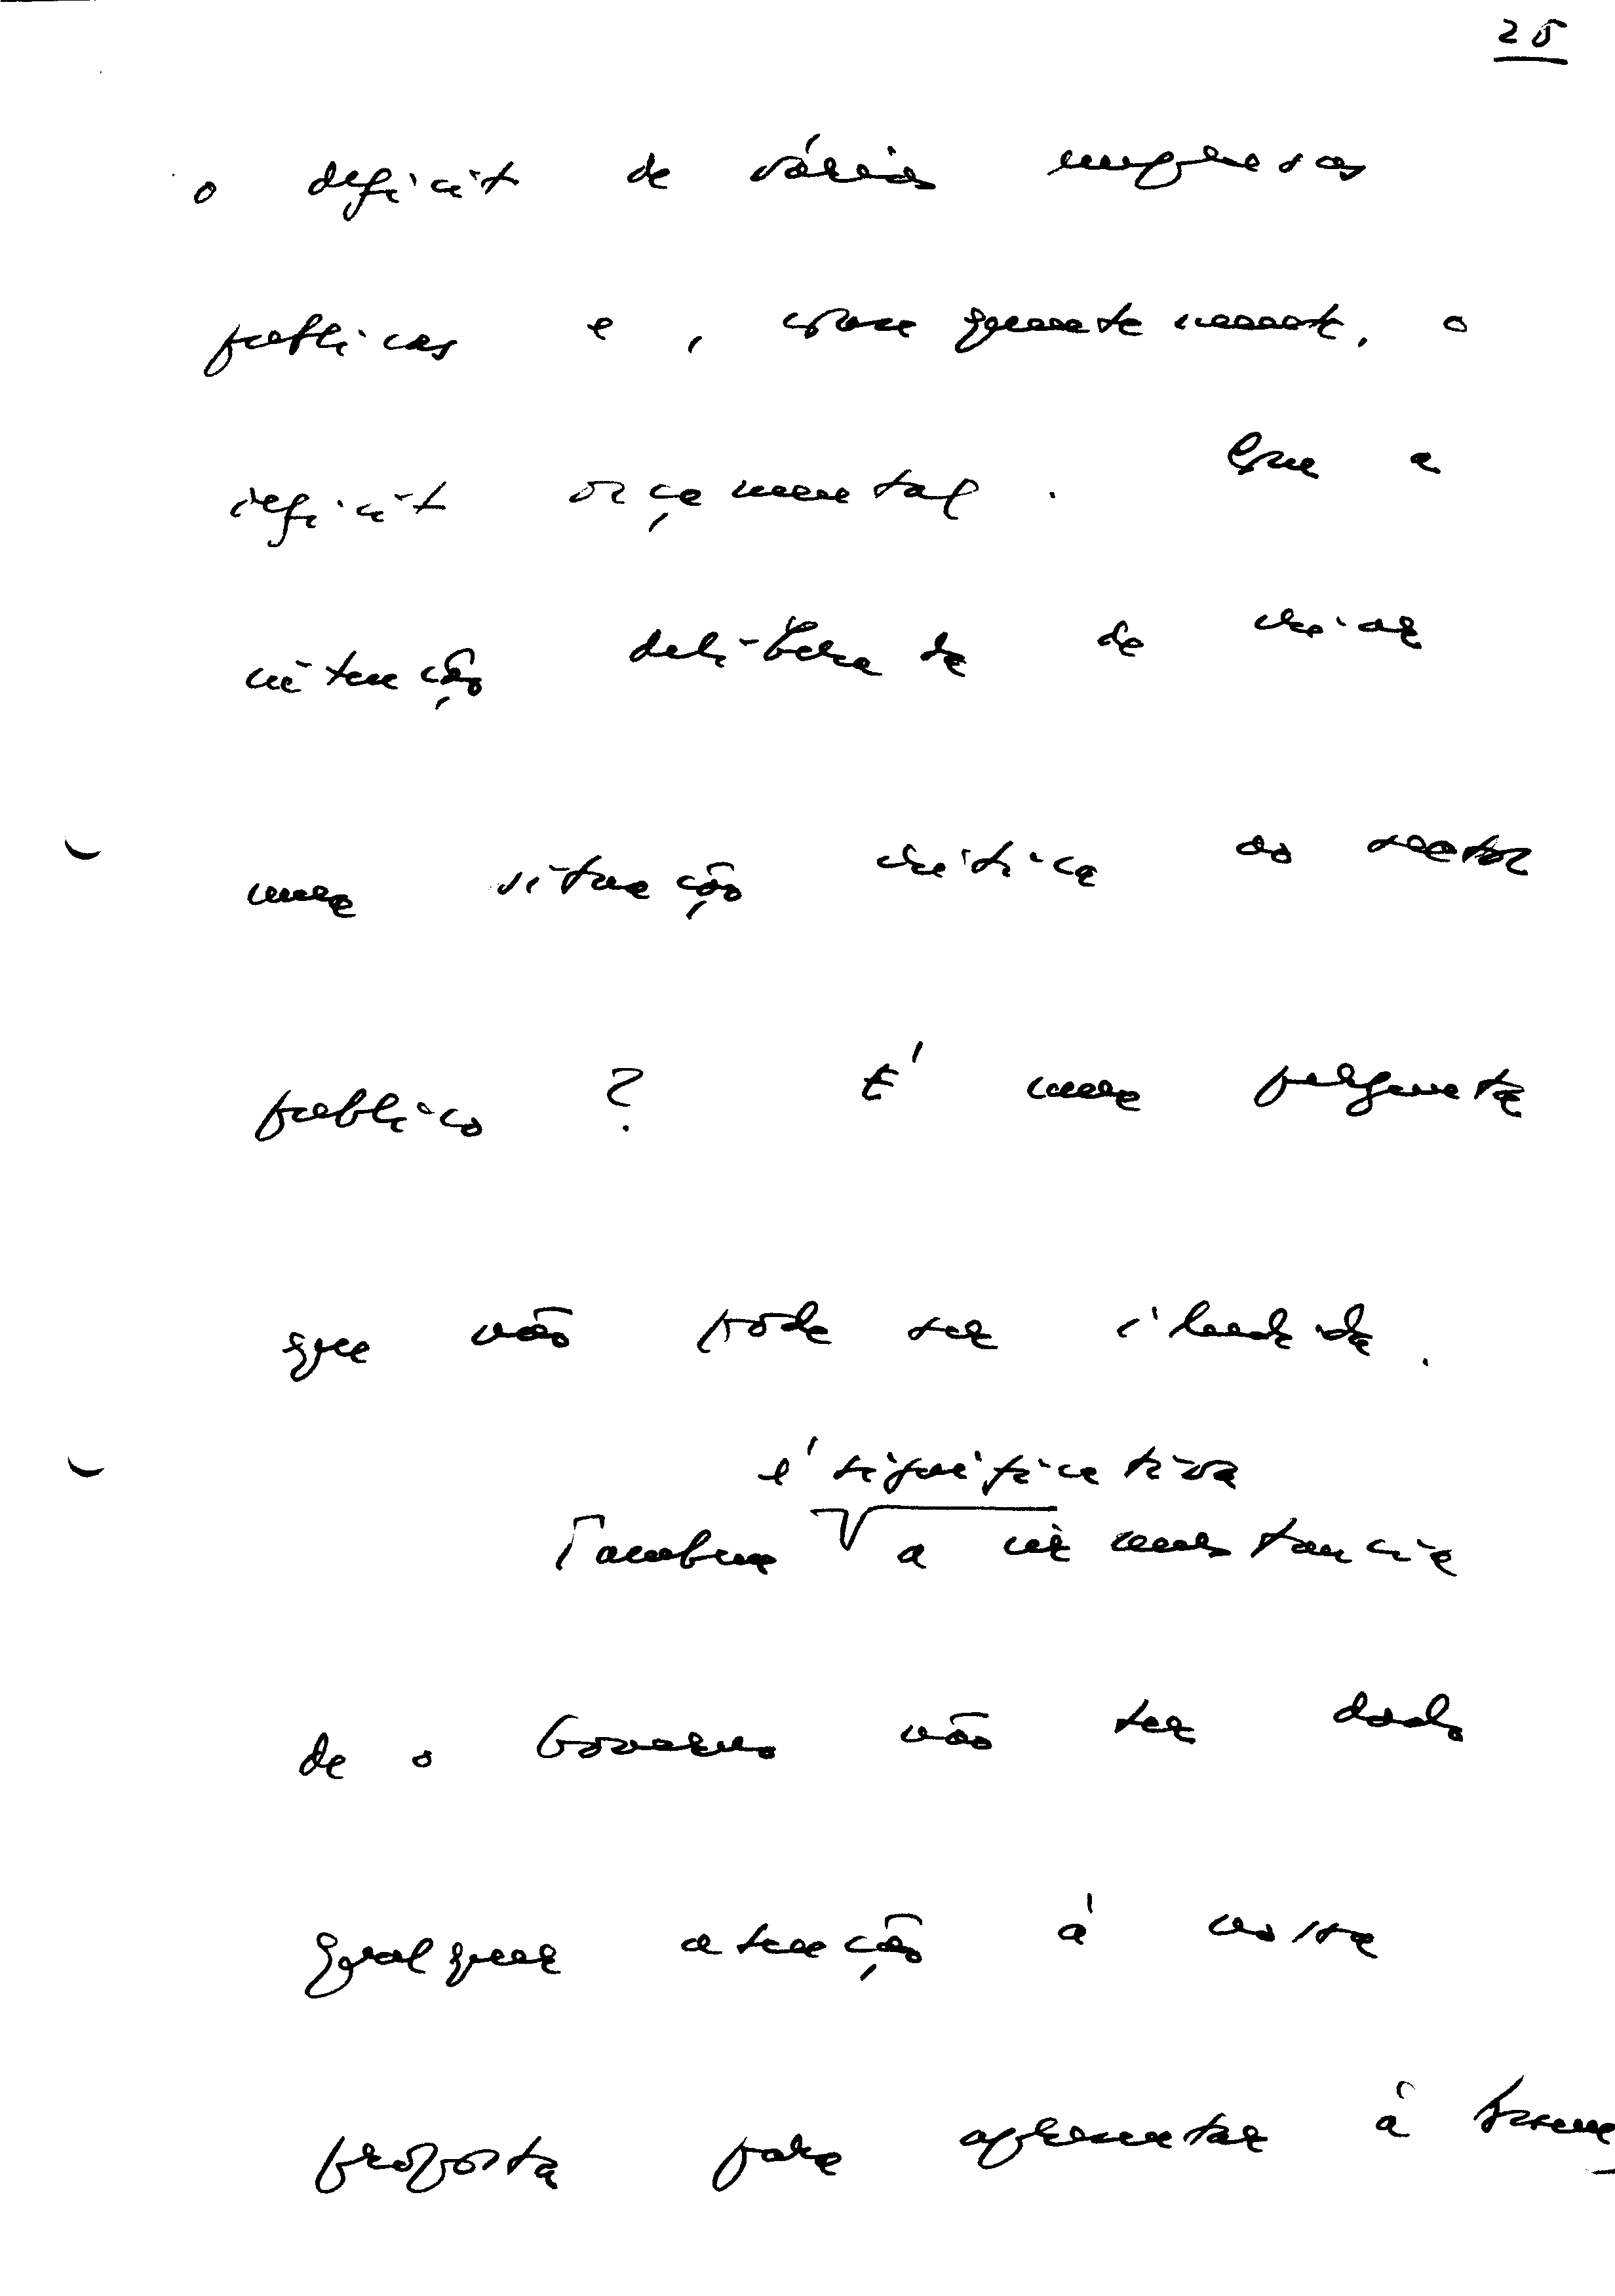 25
o deficit de várias empresas
publicas e, consequentemente, o
deficit orçamental. Com a
intenção deliberada de criar
uma situação critica ao sector
publico? É uma pergunta
que não pode ser iludida.
é significativa
Tambem a circunstancia
de o Governo não ter dado
qualquer atenção á nossa
proposta para apresentar á